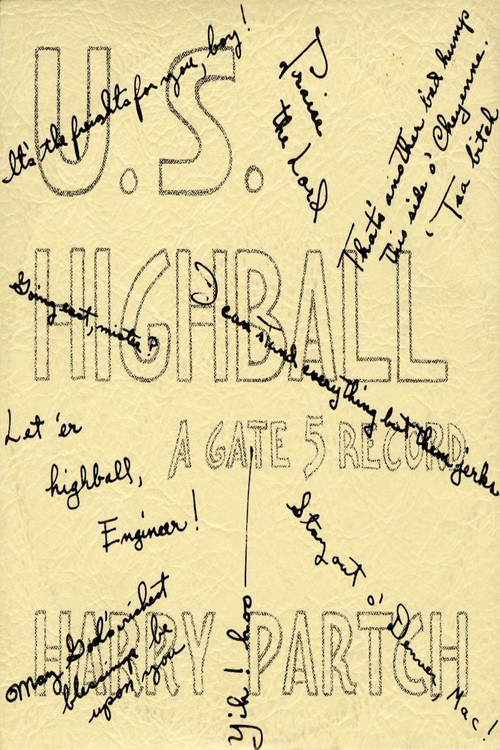 U.S.
It's the freights for you, boy!
Praise
the Lord
That's another bad hump
this side o' Cheyenne.
'Tsa bitch
HIGHBALL
Going east, mister?
I can stand everything but them jerks
A GATE 5 RECORD
Let 'er
highball,
Engineer!
Stay out o' Denver, Mac!
HARRY PARTCH
May God's richest
blessings be
upon you
Yih! hoo